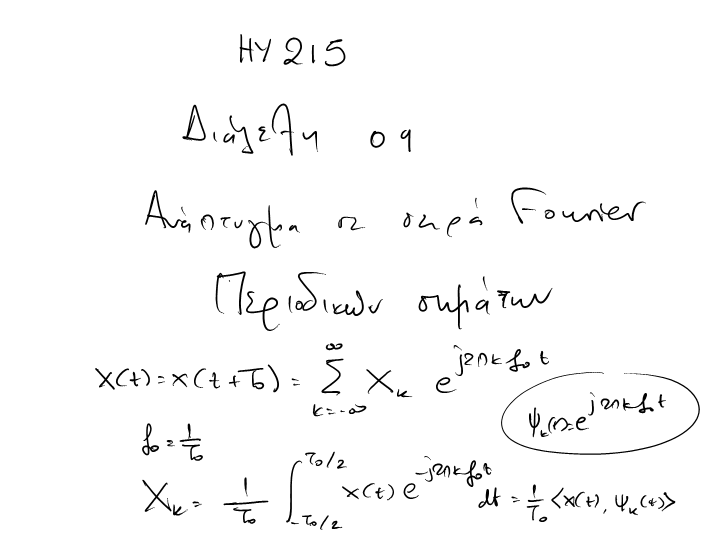 ΗΥ 215
Διάλεξη 09
Ανάπτυγμα σε σειρά Fourier
Περιοδικών σημάτων
x(t) = x(t + T₀) = ∑_{k=-∞}^{∞} X_k e^{j2πk f₀ t}
ψ_k(t) = e^{j2πk f₀ t}
f₀ = 1/T₀
X_k = 1/T₀ ∫_{-T₀/2}^{T₀/2} x(t) e^{-j2πk f₀ t} dt = 1/T₀ <x(t), ψ_k(t)>